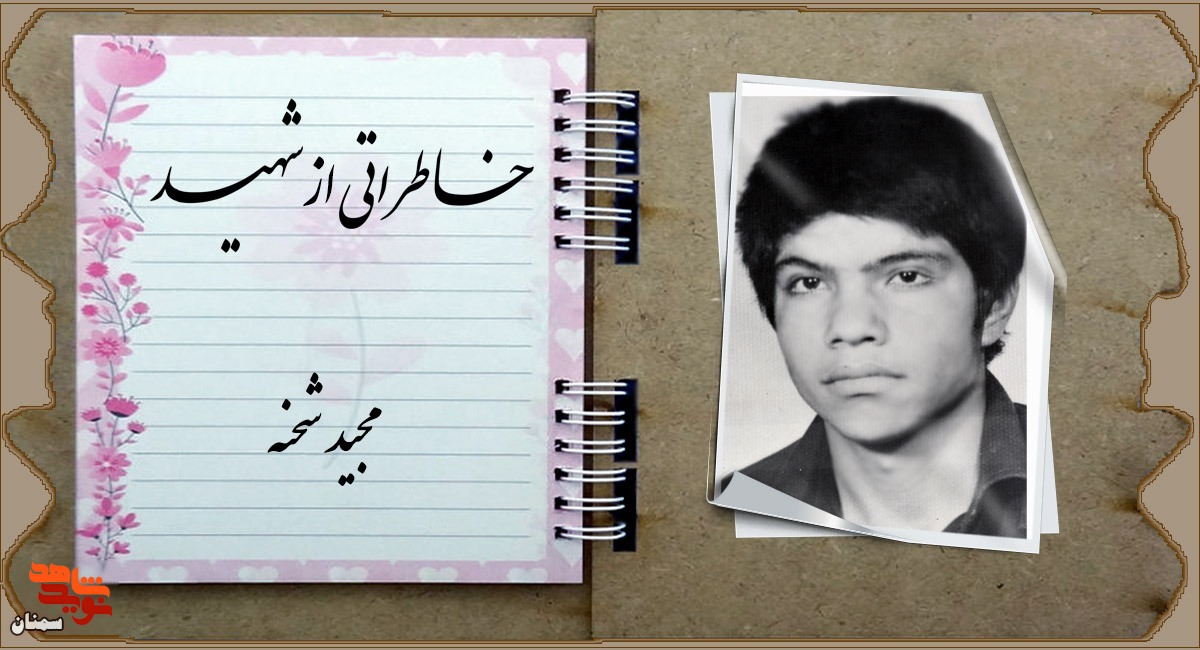 خاطراتی از شهید
مجید شحنه
نوید شاهد
سمنان